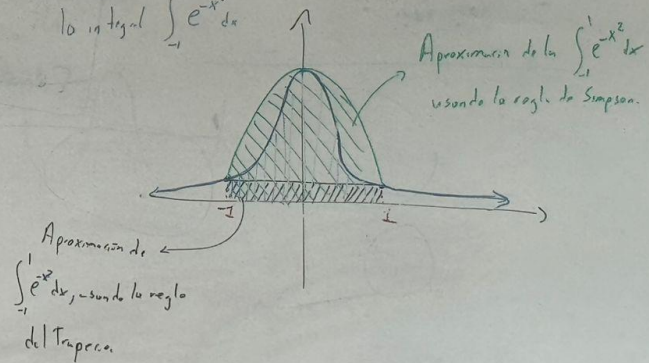 la integral ∫₋₁ e^-x² dx
Aproximación de la ∫₋₁¹ e^-x² dx
usando la regla de Simpson.
-1
1
Aproximación de
∫₋₁¹ e^-x² dx, usando la regla
del Trapecio.